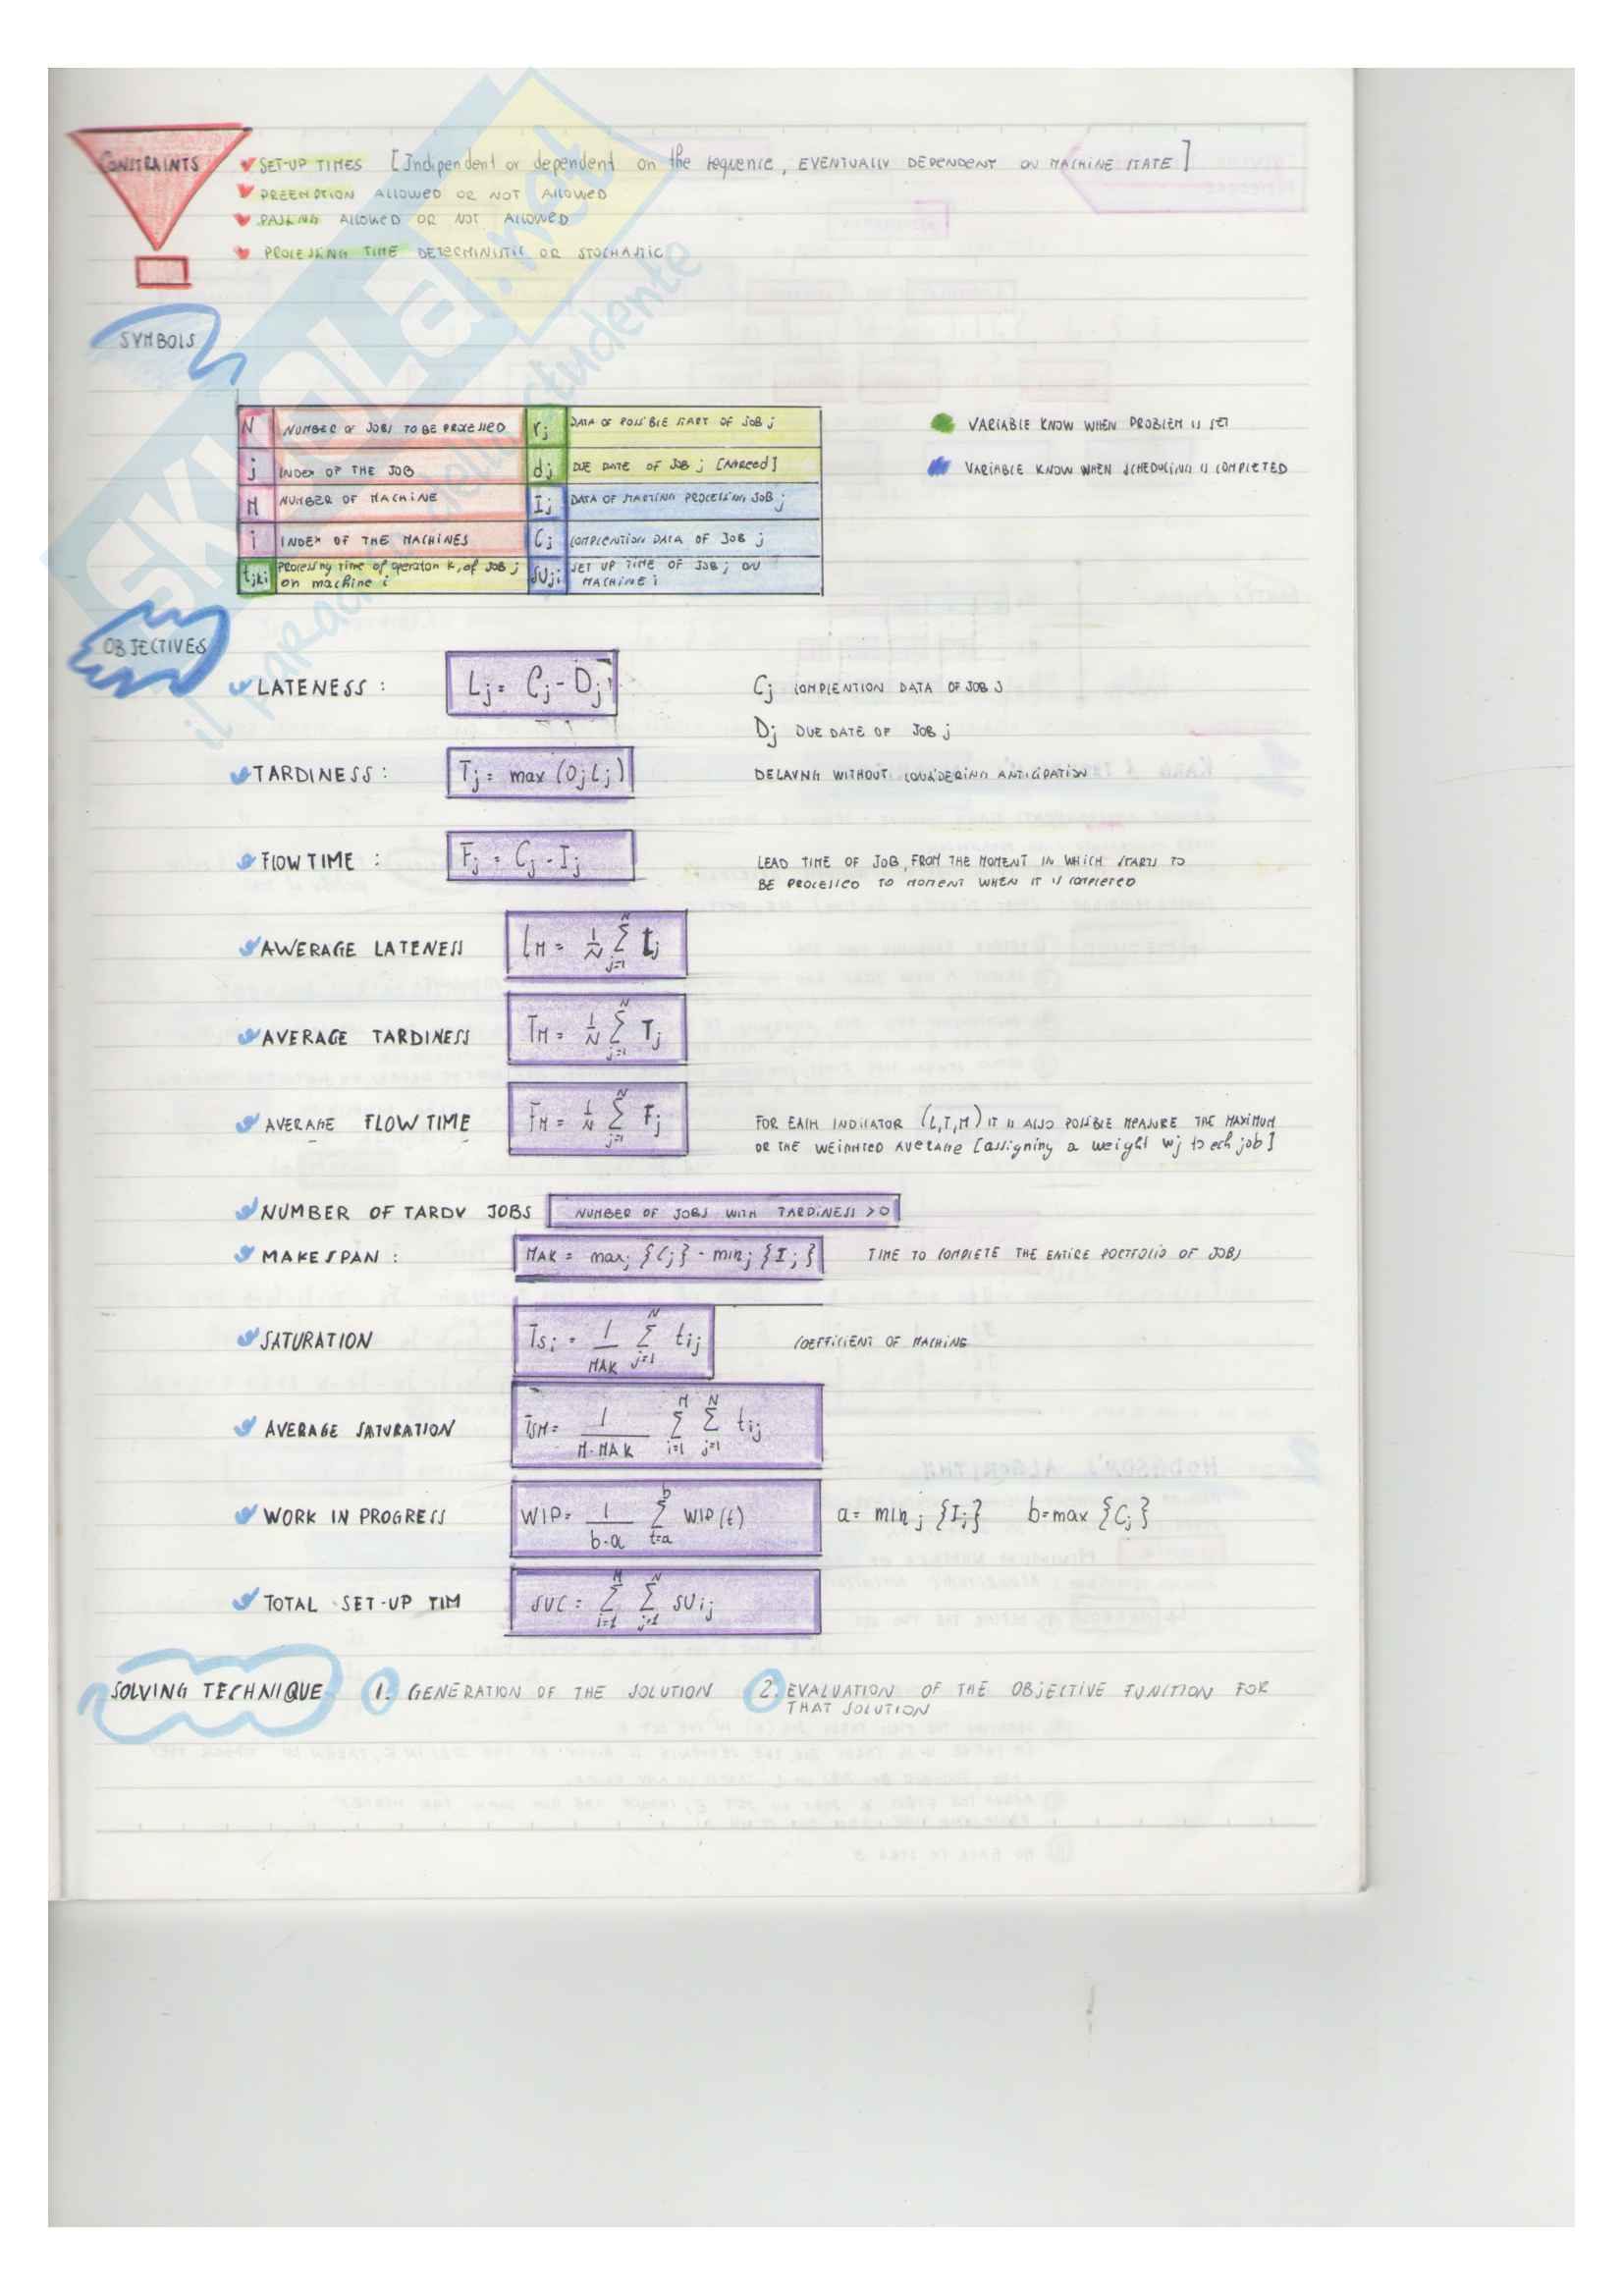 CONSTRAINTS
SET-UP TIMES [Indipendent or dependent on the sequence, EVENTUALLY DEPENDENT ON MACHINE STATE]
PREEMPTION ALLOWED OR NOT ALLOWED
PASSING ALLOWED OR NOT ALLOWED
PROCESSING TIME DETERMINISTIC OR STOCHASTIC
SYMBOLS
N NUMBER OF JOBS TO BE PROCESSED rj DATA OF POSSIBLE START OF JOB j
j INDEX OF THE JOB dj DUE DATE OF JOB j [AGREED]
M NUMBER OF MACHINE Ij DATA OF STARTING PROCESSING JOB j
i INDEX OF THE MACHINES Cj COMPLENTION DATA OF JOB j
tjki Processing time of operaton k, of JOB j on machine i SUji SET UP TIME OF JOB j ON MACHINE i
VARIABLE KNOW WHEN PROBLEM IS SET
VARIABLE KNOW WHEN SCHEDULING IS COMPLETED
OBJECTIVES
LATENESS : Lj = Cj - Dj Cj COMPLENTION DATA OF JOB J
Dj DUE DATE OF JOB j
TARDINESS : Tj = max (0; Lj) DELAYNG WITHOUT CONSIDERING ANTICIPATION
FLOW TIME : Fj = Cj - Ij LEAD TIME OF JOB, FROM THE MOMENT IN WHICH STARTS TO
BE PROCESSED TO MOMENT WHEN IT IS COMPLETED
AWERAGE LATENESS LM = 1/N Σ j=1 N Lj
AVERAGE TARDINESS TM = 1/N Σ j=1 N Tj
AVERAGE FLOW TIME FM = 1/N Σ j=1 N Fj
FOR EACH INDICATOR (L,T,M) IT IS ALSO POSSIBLE MEASURE THE MAXIMUM
OR THE WEIGHTED AVERAGE [assigning a weight wj to ech job]
NUMBER OF TARDY JOBS NUMBER OF JOBS WITH TARDINESS > 0
MAKESPAN : MAK = maxj {Cj} - minj {Ij} TIME TO COMPLETE THE ENTIRE PORTFOLIO OF JOBS
SATURATION TSi = 1/MAK Σ j=1 N tij COEFFICIENT OF MACHINE
AVERAGE SATURATION TSM = 1/M·MAK Σ i=1 M Σ j=1 N tij
WORK IN PROGRESS WIP= 1/b-a Σ t=a b WIP(t) a= minj {Ij} b=max {Cj}
TOTAL SET-UP TIM SUC = Σ i=1 M Σ j=1 N SUij
SOLVING TECHNIQUE 1. GENERATION OF THE SOLUTION 2. EVALUATION OF THE OBJECTIVE FUNCTION FOR
THAT SOLUTION
SKUOLA.net
il PARADISO dello studente